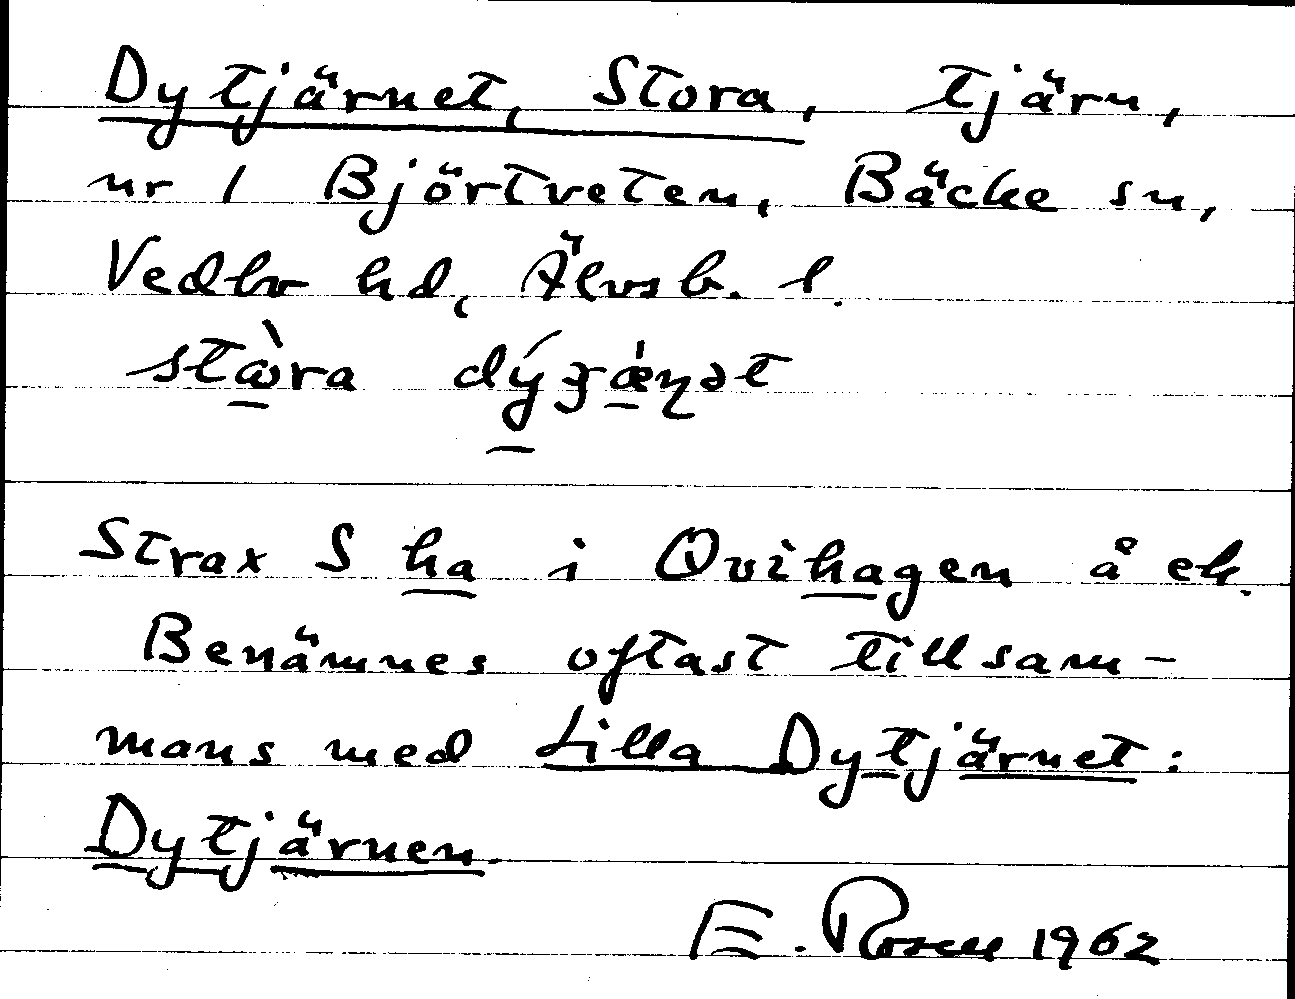 Dytjärnet, Stora, tjärn,
nr 1 Björtveten, Bäcke sn,
Vedbo hd, Älvsb. l.
stɷ̀ra dýʒæ̇ɳət
Strax S ha i Ovihagen å ek.
Benämnes oftast tillsam-
mans med Lilla Dytjärnet:
Dytjärnen.
E. Rosell 1962